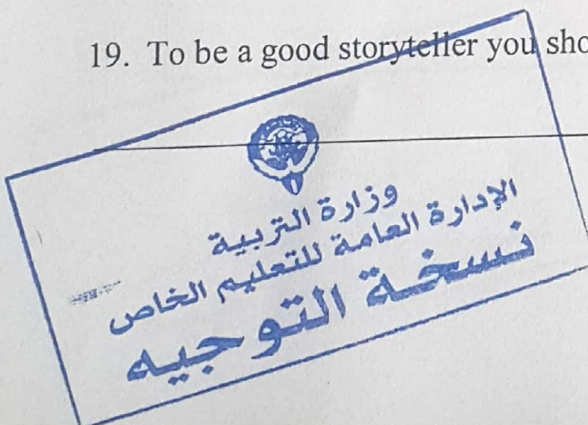 19. To be a good storyteller you sho
وزارة التربية
الإدارة العامة للتعليم الخاص
نسخة التوجيه